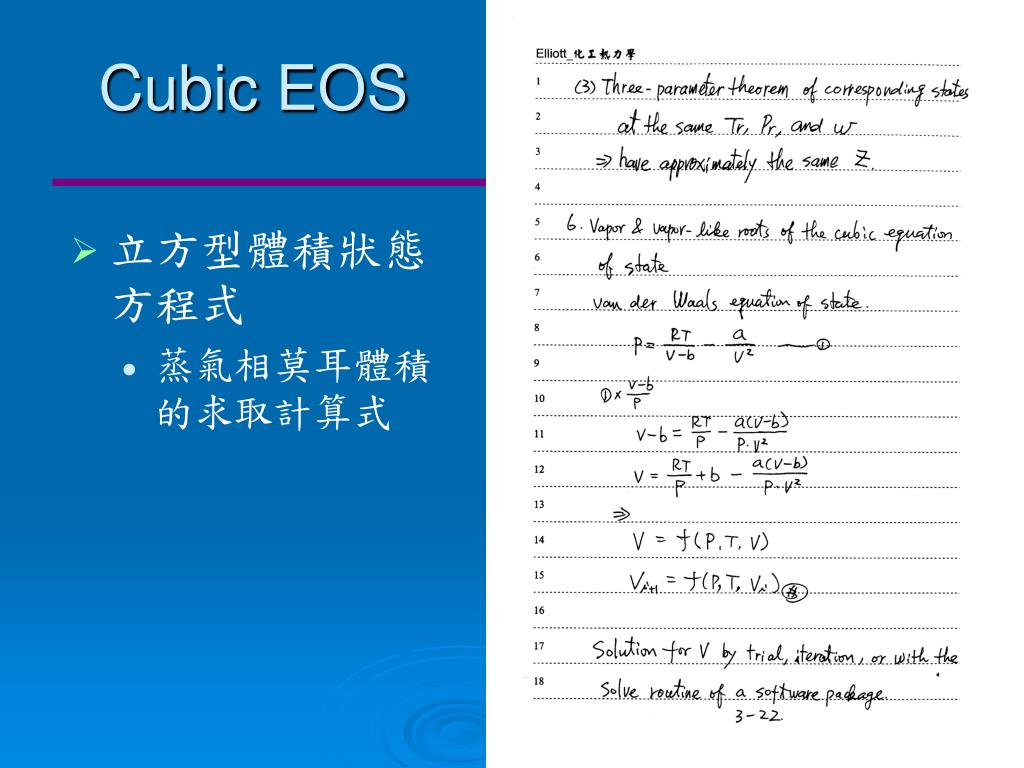 Cubic EOS
立方型體積狀態
方程式
蒸氣相莫耳體積
的求取計算式
Elliott_化工熱力學
1 (3) Three-parameter theorem of corresponding states
2 at the same Tr, Pr, and ω
3 ⇒ have approximately the same Z.
4
5 6. Vapor & vapor-like roots of the cubic equation
6 of state
7 van der Waals equation of state.
8 P = RT/(V-b) - a/V² —— ①
9
10 ① × (V-b)/P
11 V-b = RT/P - a(V-b)/(P·V²)
12 V = RT/P + b - a(V-b)/(P·V²)
13 ⇒
14 V = f(P, T, V)
15 Vi+1 = f(P, T, Vi)
16
17 Solution for V by trial, iteration, or with the
18 solve routine of a software package.
3-22.